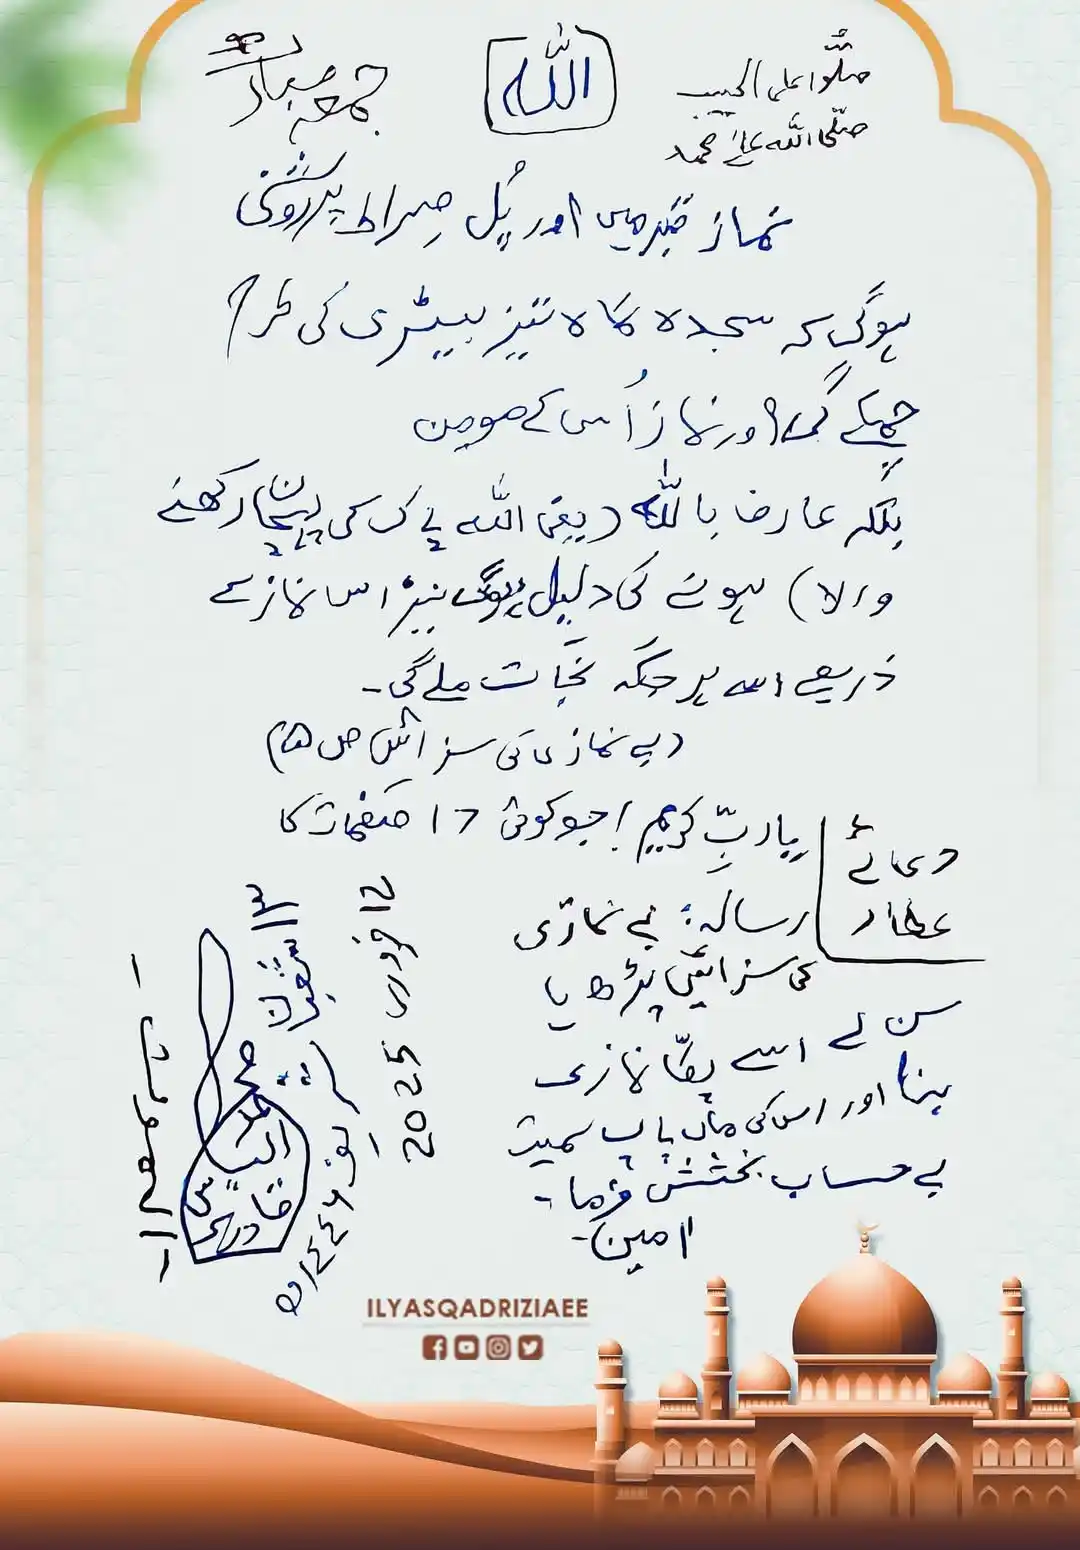 صلّوا علی الحبیب
صلّی اللہ علیٰ محمد
اللہ
جمعہ مبارک
نماز قبر میں اور پُل صِراط پر روشنی
ہوگی کہ سجدہ گاہ تیز بیٹری کی طرح
چمکے گی اور نماز اُس کے مومن
بلکہ عارف باللہ (یعنی اللہ پاک کی پہچان رکھنے
والا) ہونے کی دلیل ہوگی نیز اس نماز کے
ذریعے اسے ہر جگہ نَجات ملے گی۔
(بے نمازی کی سزائیں ص
دعائے
عطار
یا ربِّ کریم! جو کوئی 17 صفحات کا
رسالہ: بے نمازی
کی سزائیں پڑھ یا
سن لے اسے پکّا نمازی
بنا اور اس کی ماں باپ سمیت
بے حساب بخشش فرما۔
اٰمین۔
12 فروری 2025
۱۳ شعبان
شریف ۱۴۴۶ھ
محمد
الیاس
قادری
ILYASQADRIZIAEE